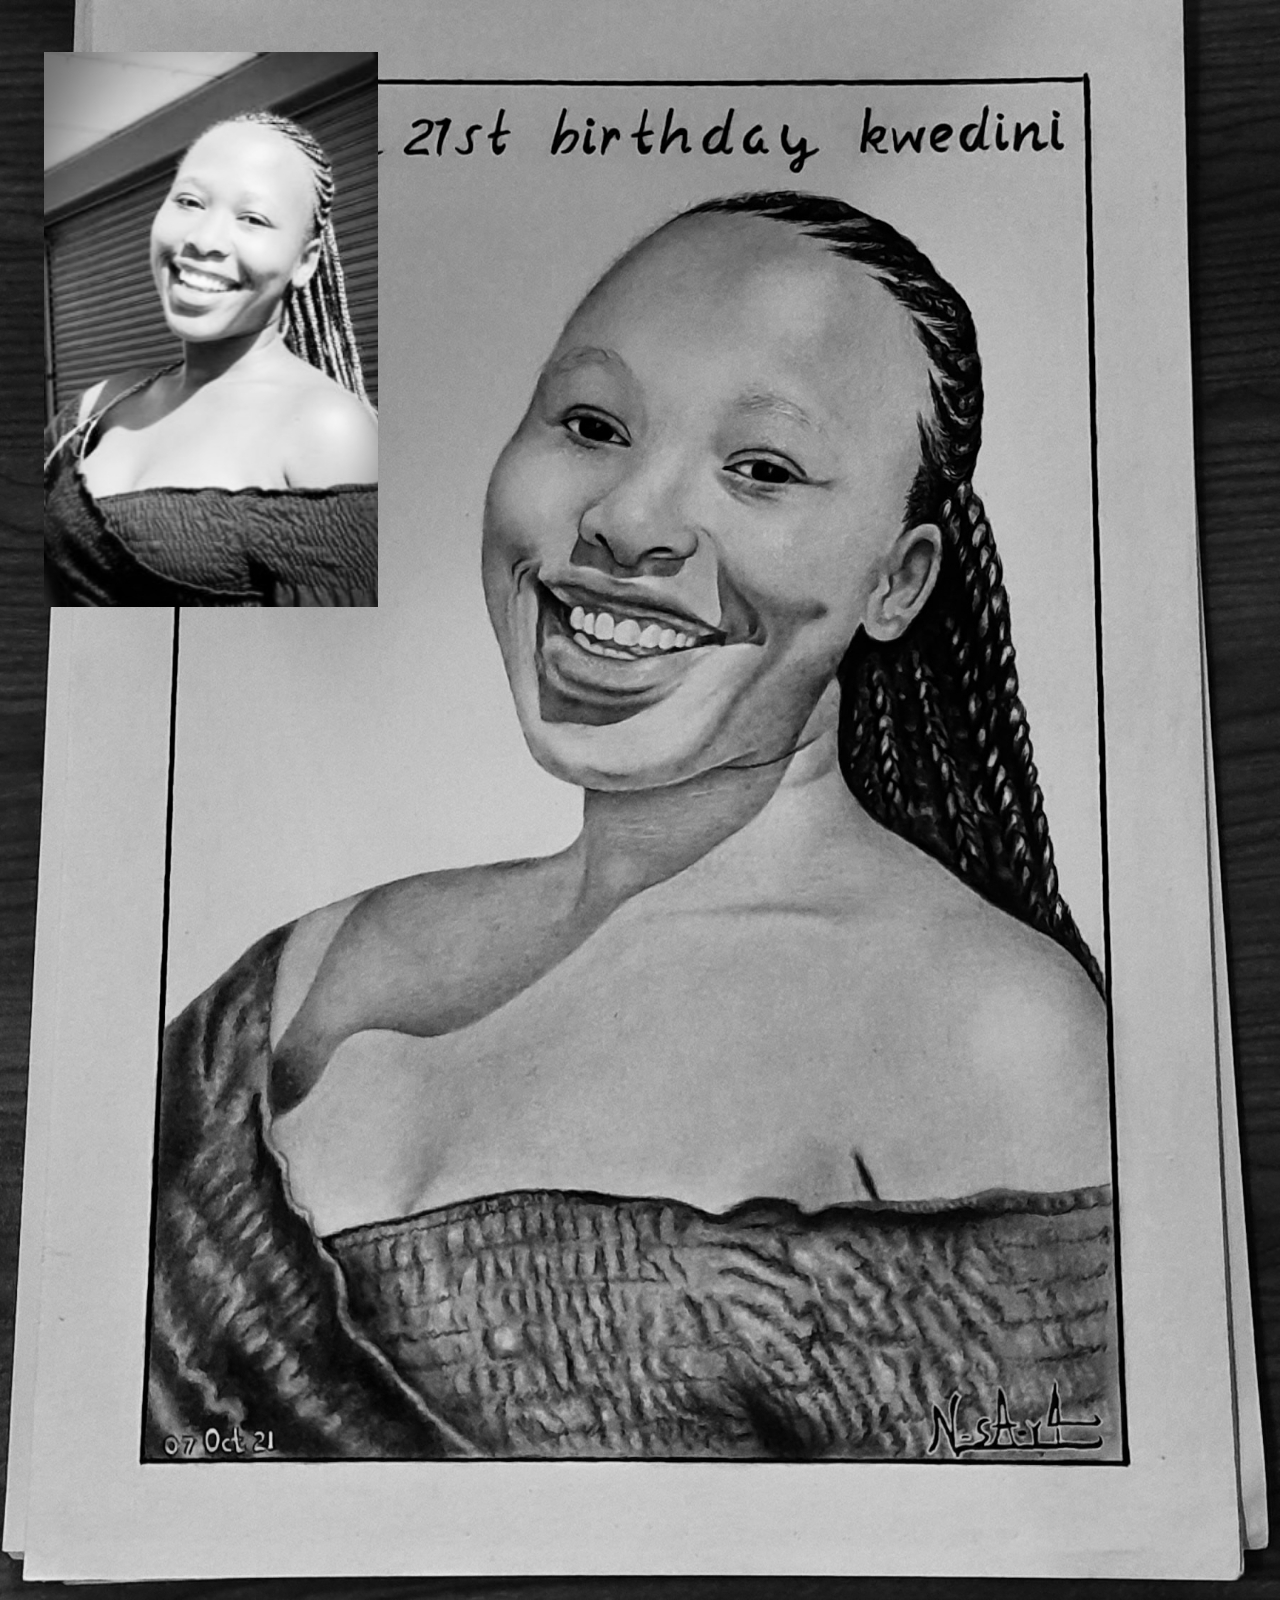 21st birthday kwedini
07 Oct 21